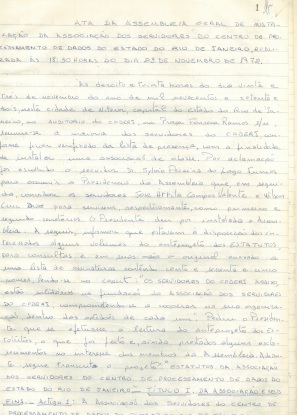 1
ATA DA ASSEMBLEIA GERAL DE INSTA-
LAÇÃO DA ASSOCIAÇÃO DOS SERVIDORES DO CENTRO DE PRO-
CESSAMENTO DE DADOS DO ESTADO DO RIO DE JANEIRO, REALI-
ZADA ÀS 18:30 HORAS DO DIA 23 DE NOVEMBRO DE 1972.
Às dezoito e trinta horas do dia vinte e
três de novembro do ano de mil novecentos e setenta e
dois, nesta cidade de Niterói, capital do Estado do Rio de Ja-
neiro, no auditório do CPDERJ, na Praça Fonseca Ramos s/nº
a maioria dos servidores do CPDERJ con-
forme ficou verificado da lista de presença, com a finalidade
de instalar uma associação de classe. Por aclamação
foi escolhido o servidor Dr. Sylvio Pereira do Lago
para a Presidência da Assembleia que, em segui-
da, convidou os servidores José Campos
para primeiro e
segundo secretários. O Presidente deu por instalada a Assem-
bleia. A seguir, informou que estavam à disposição dos in-
teressados alguns volumes do anteprojeto dos ESTATUTOS
para consultas e em suas mãos o original
uma lista de assinaturas contendo cento e sessenta e cinco
nomes, "OS SERVIDORES DO CPDERJ ABAIXO,
fundação da ASSOCIAÇÃO DOS SERVIDORES
DO CPDERJ, comprometendo-se a
dentro das de cada um. O Presiden-
te que se efetuasse a leitura do anteprojeto dos Es-
tatutos, o que foi feito e ainda, prestados alguns escla-
recimentos ao interesse dos membros da Assembleia.
a seguir transcrito o projeto: "ESTATUTOS DA ASSOCIAÇÃO
DOS SERVIDORES DO CENTRO DE PROCESSAMENTO DE DADOS DO
ESTADO DO RIO DE JANEIRO - TÍTULO I - DA ASSOCIAÇÃO E SEUS
FINS - Artigo 1º: A ASSOCIAÇÃO DOS SERVIDORES DO CENTRO DE
PROCESSAMENTO DE DADOS DO ESTADO DO RIO DE JANEIRO